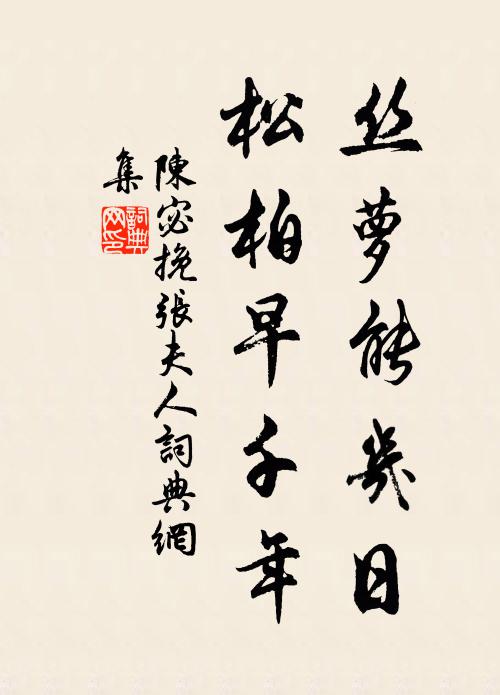 丝萝能几日
松柏早千年
陳宓挽張夫人詞典網
集
詞典网印